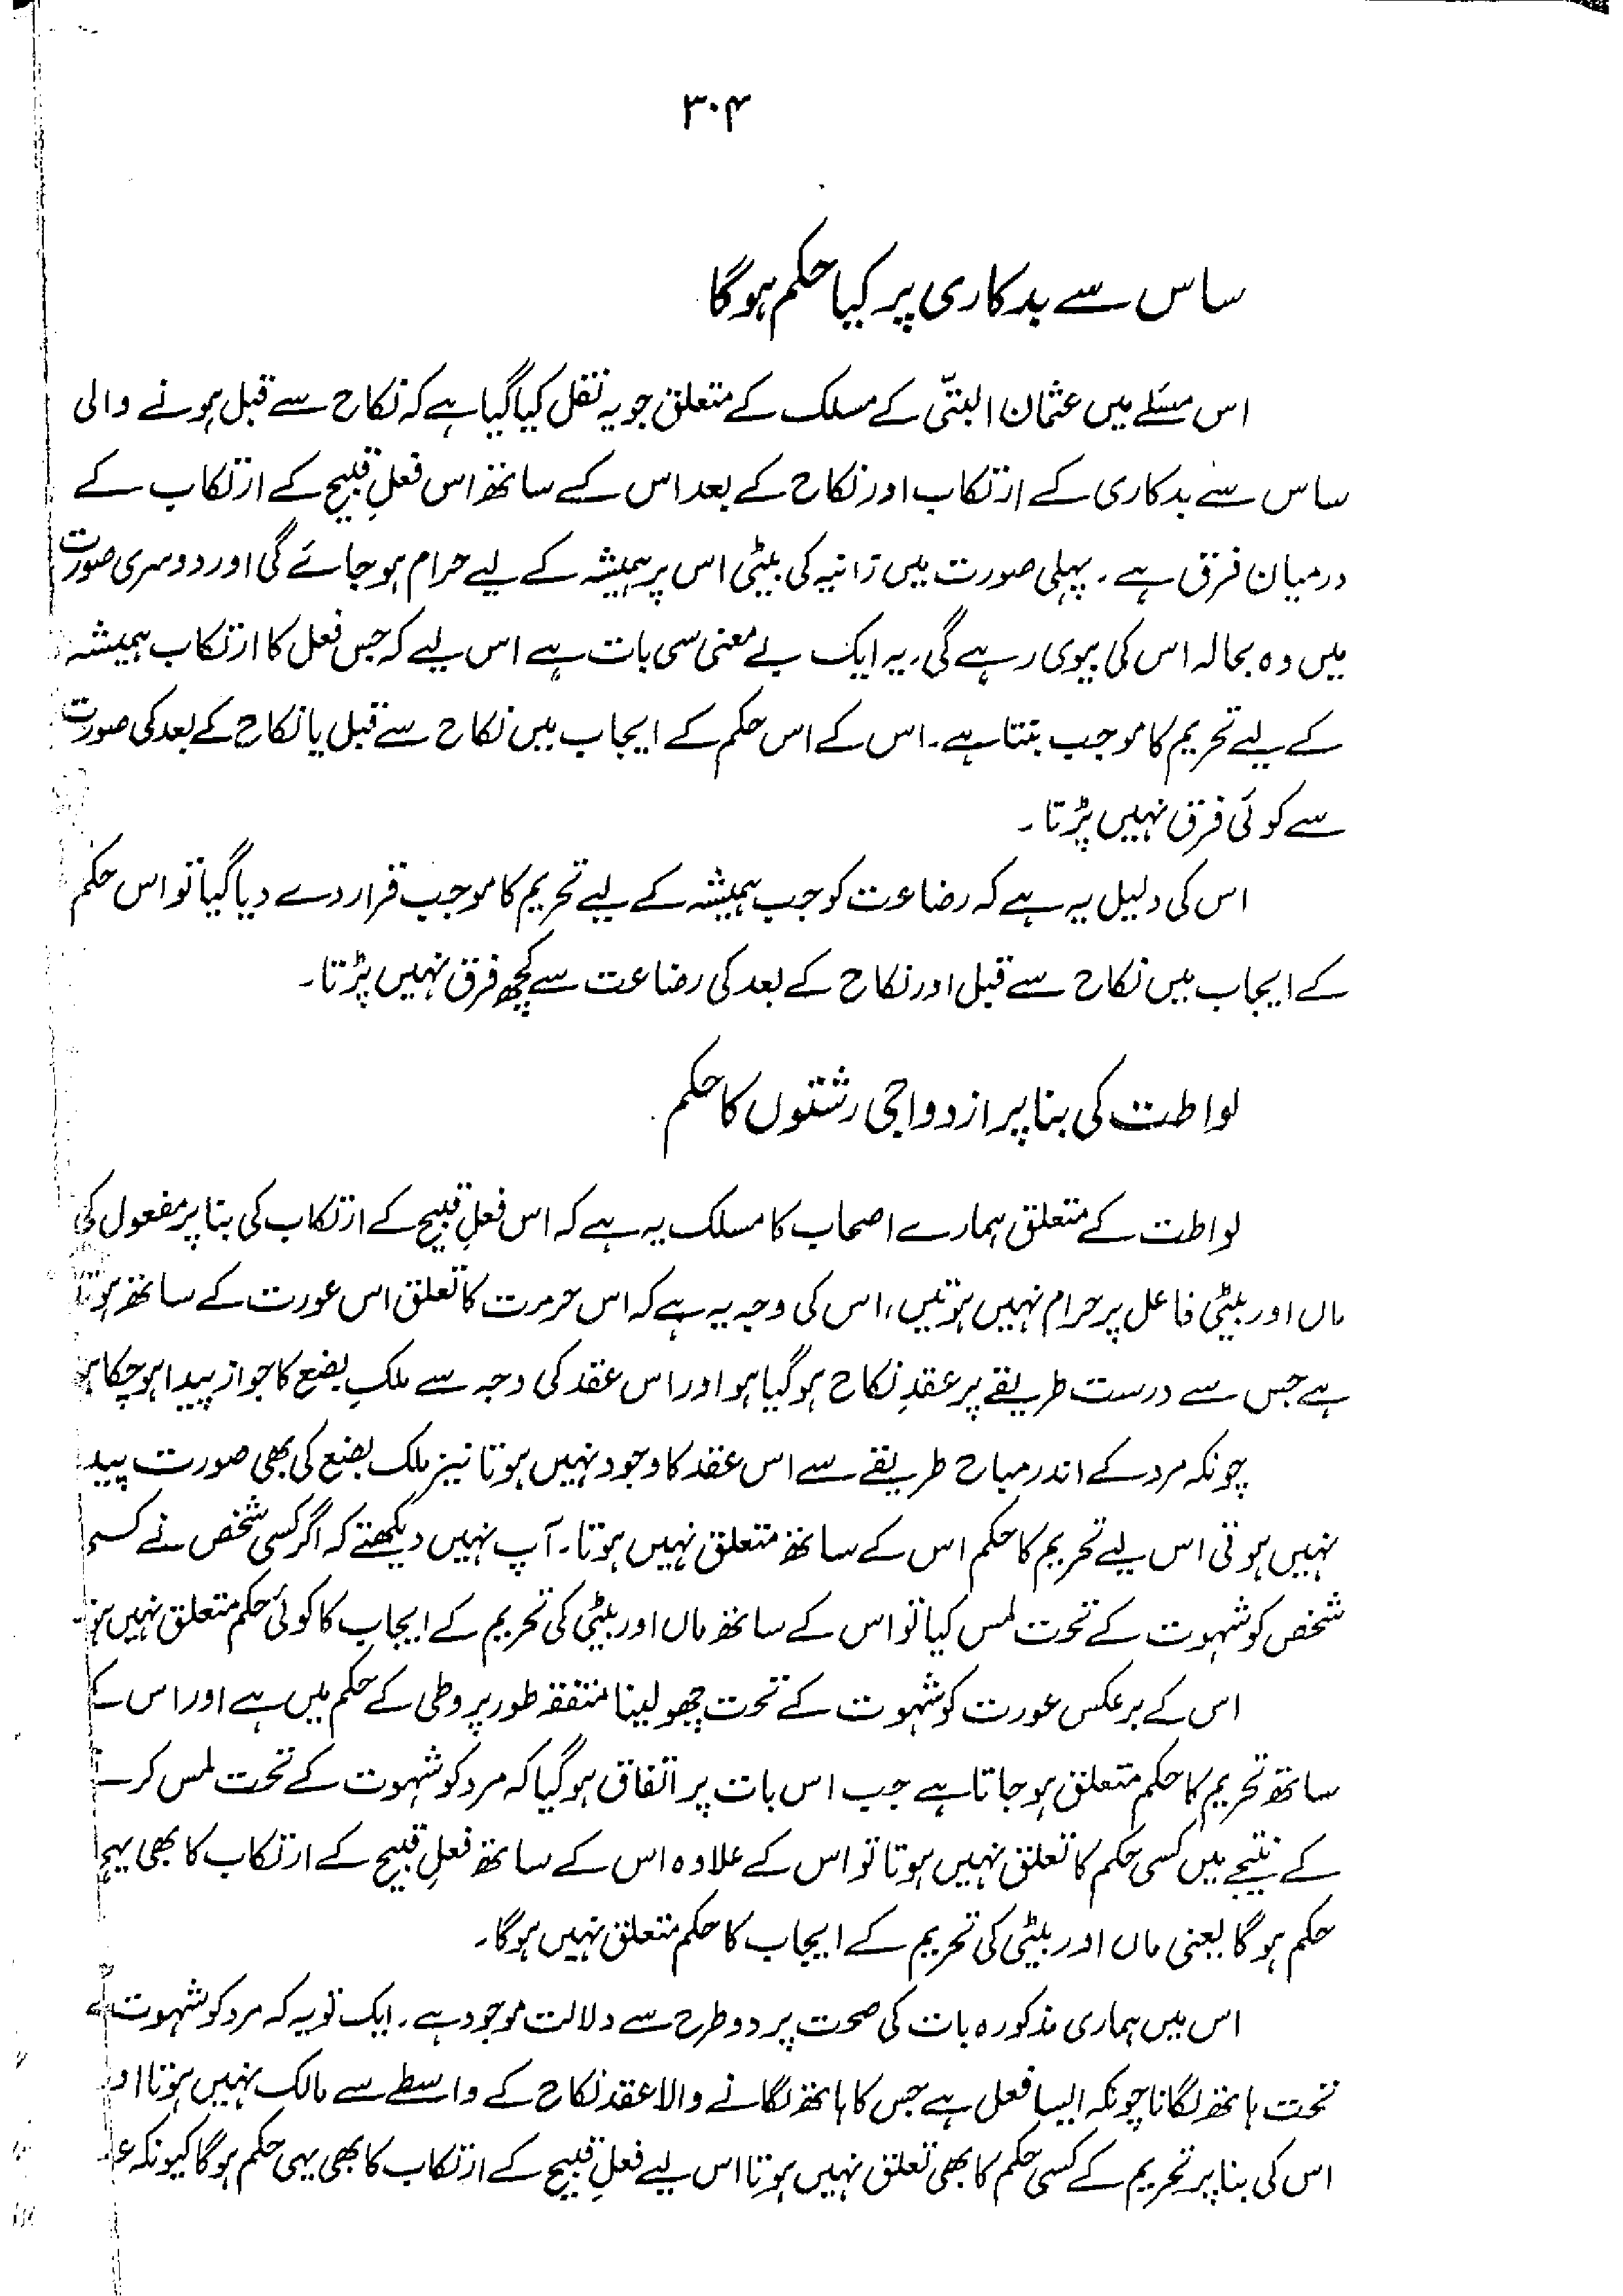 ۳۰۴
ساس سے بدکاری پر کیا حکم ہوگا
اس مسئلے میں عثمان البتّی کے مسلک کے متعلق جو یہ نقل کیا گیا ہے کہ نکاح سے قبل ہونے والی
ساس سے بدکاری کے ارتکاب اور نکاح کے بعد اس کے ساتھ اس فعلِ قبیح کے ارتکاب کے
درمیان فرق ہے۔ پہلی صورت میں زانیہ کی بیٹی اس پر ہمیشہ کے لیے حرام ہو جائے گی اور دوسری صورت
میں وہ بحالہ اس کی بیوی رہے گی۔ یہ ایک بے معنی سی بات ہے اس لیے کہ جس فعل کا ارتکاب ہمیشہ
کے لیے تحریم کا موجب بنتا ہے۔ اس کے اس حکم کے ایجاب میں نکاح سے قبل یا نکاح کے بعد کی صورت
سے کوئی فرق نہیں پڑتا۔
اس کی دلیل یہ ہے کہ رضاعت کو جب ہمیشہ کے لیے تحریم کا موجب قرار دے دیا گیا تو اس حکم
کے ایجاب میں نکاح سے قبل اور نکاح کے بعد کی رضاعت سے کچھ فرق نہیں پڑتا۔
لواطت کی بنا پر ازدواجی رشتوں کا حکم
لواطت کے متعلق ہمارے اصحاب کا مسلک یہ ہے کہ اس فعلِ قبیح کے ارتکاب کی بنا پر مفعول کی
ماں اور بیٹی فاعل پر حرام نہیں ہوتیں، اس کی وجہ یہ ہے کہ اس حرمت کا تعلق اس عورت کے ساتھ ہوتا
ہے جس سے درست طریقے پر عقدِ نکاح ہو گیا ہو اور اس عقد کی وجہ سے ملکِ بضع کا جواز پیدا ہو چکا ہو
چونکہ مرد کے اندر مباح طریقے سے اس عقد کا وجود نہیں ہوتا نیز ملک بضع کی بھی صورت پیدا
نہیں ہوتی اس لیے تحریم کا حکم اس کے ساتھ متعلق نہیں ہوتا۔ آپ نہیں دیکھتے کہ اگر کسی شخص نے کسی
شخص کو شہوت کے تحت لمس کیا تو اس کے ساتھ ماں اور بیٹی کی تحریم کے ایجاب کا کوئی حکم متعلق نہیں
اس کے برعکس عورت کو شہوت کے تحت چھو لینا متفقہ طور پر وطی کے حکم میں ہے اور اس کے
ساتھ تحریم کا حکم متعلق ہو جاتا ہے جب اس بات پر اتفاق ہو گیا کہ مرد کو شہوت کے تحت لمس کرنے
کے نتیجے میں کسی حکم کا تعلق نہیں ہوتا تو اس کے علاوہ اس کے ساتھ فعلِ قبیح کے ارتکاب کا بھی یہی
حکم ہوگا یعنی ماں اور بیٹی کی تحریم کے ایجاب کا حکم متعلق نہیں ہوگا۔
اس میں ہماری مذکورہ بات کی صحت پر دو طرح سے دلالت موجود ہے۔ ایک تو یہ کہ مرد کو شہوت کے
تحت ہاتھ لگانا چونکہ ایسا فعل ہے جس کا ہاتھ لگانے والا عقد نکاح کے واسطے سے مالک نہیں ہوتا اور
اس کی بنا پر تحریم کے کسی حکم کا بھی تعلق نہیں ہوتا اس لیے فعلِ قبیح کے ارتکاب کا بھی یہی حکم ہوگا کیونکہ